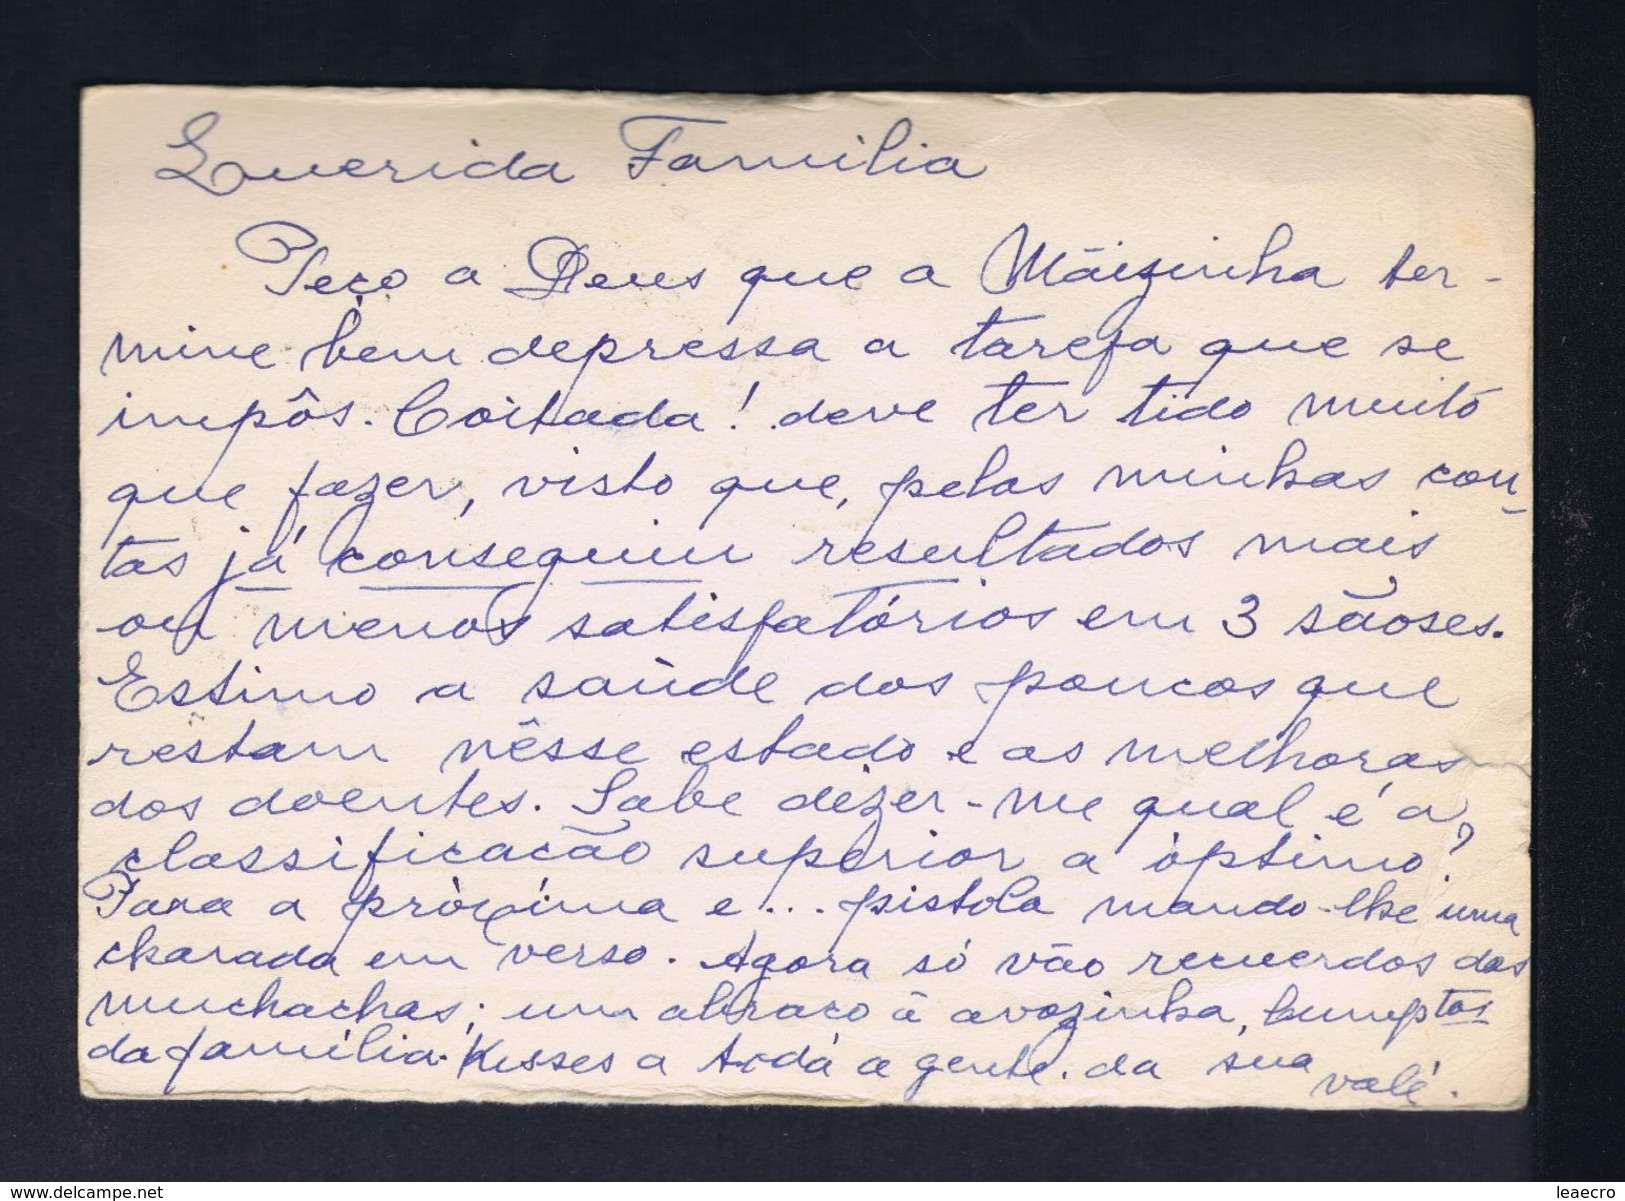 Querida Familia
Peço a Deus que a Mãizinha ter-
mine bem depressa a tarefa que se
impôs. Coitada! deve ter tido muito
que fazer, visto que, pelas minhas con-
tas já conseguiu resultados mais
ou menos satisfatórios em 3 sãoses.
Estimo a saùde dos poucos que
restam nêsse estado e as melhoras
dos doentes. Sabe dizer-me qual é a
classificação superior a óptimo?
Para a pròxima e... pistola mando-lhe uma
charada em verso. Agora só vão recuerdos das
muchachas; um abraço à avozinha, cumptos
da família. Kisses a tôda a gente. da sua
valé.
delcampe.net
leaecro